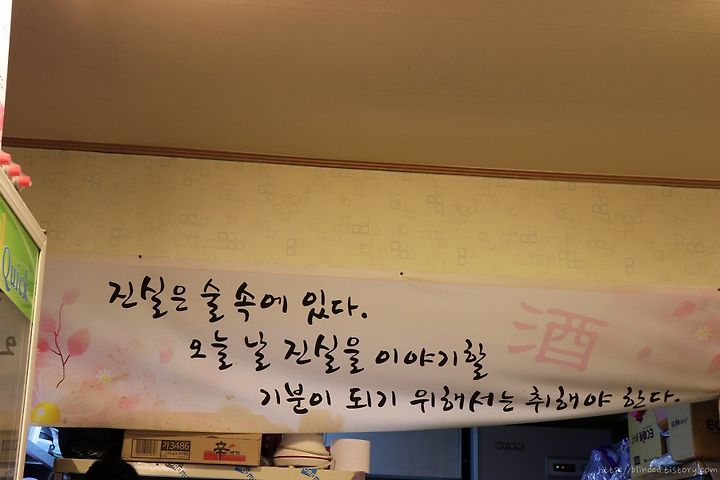 진실은 술 속에 있다.
오늘 날 진실을 이야기할
기분이 되기 위해서는 취해야 한다.
酒
Quick
기3486
辛
http://blinded.tistory.com